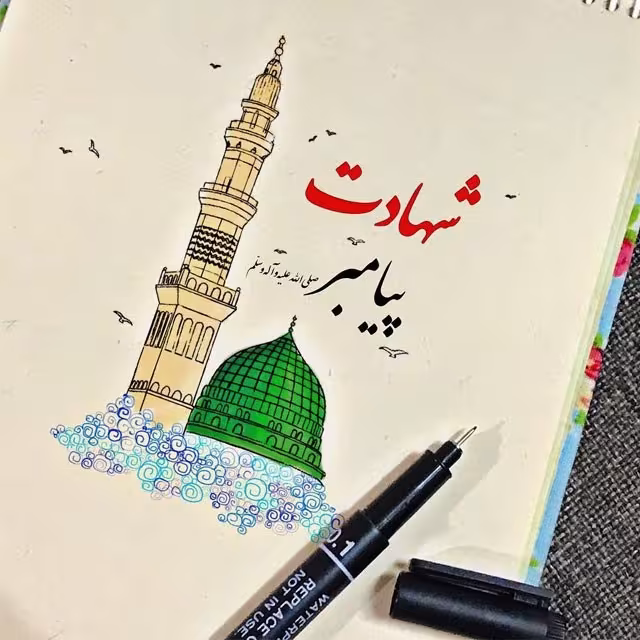 شهادت
پیامبر صلی الله علیه وآله وسلم
0.1
WATERP
REPLACE
NOT IN USE